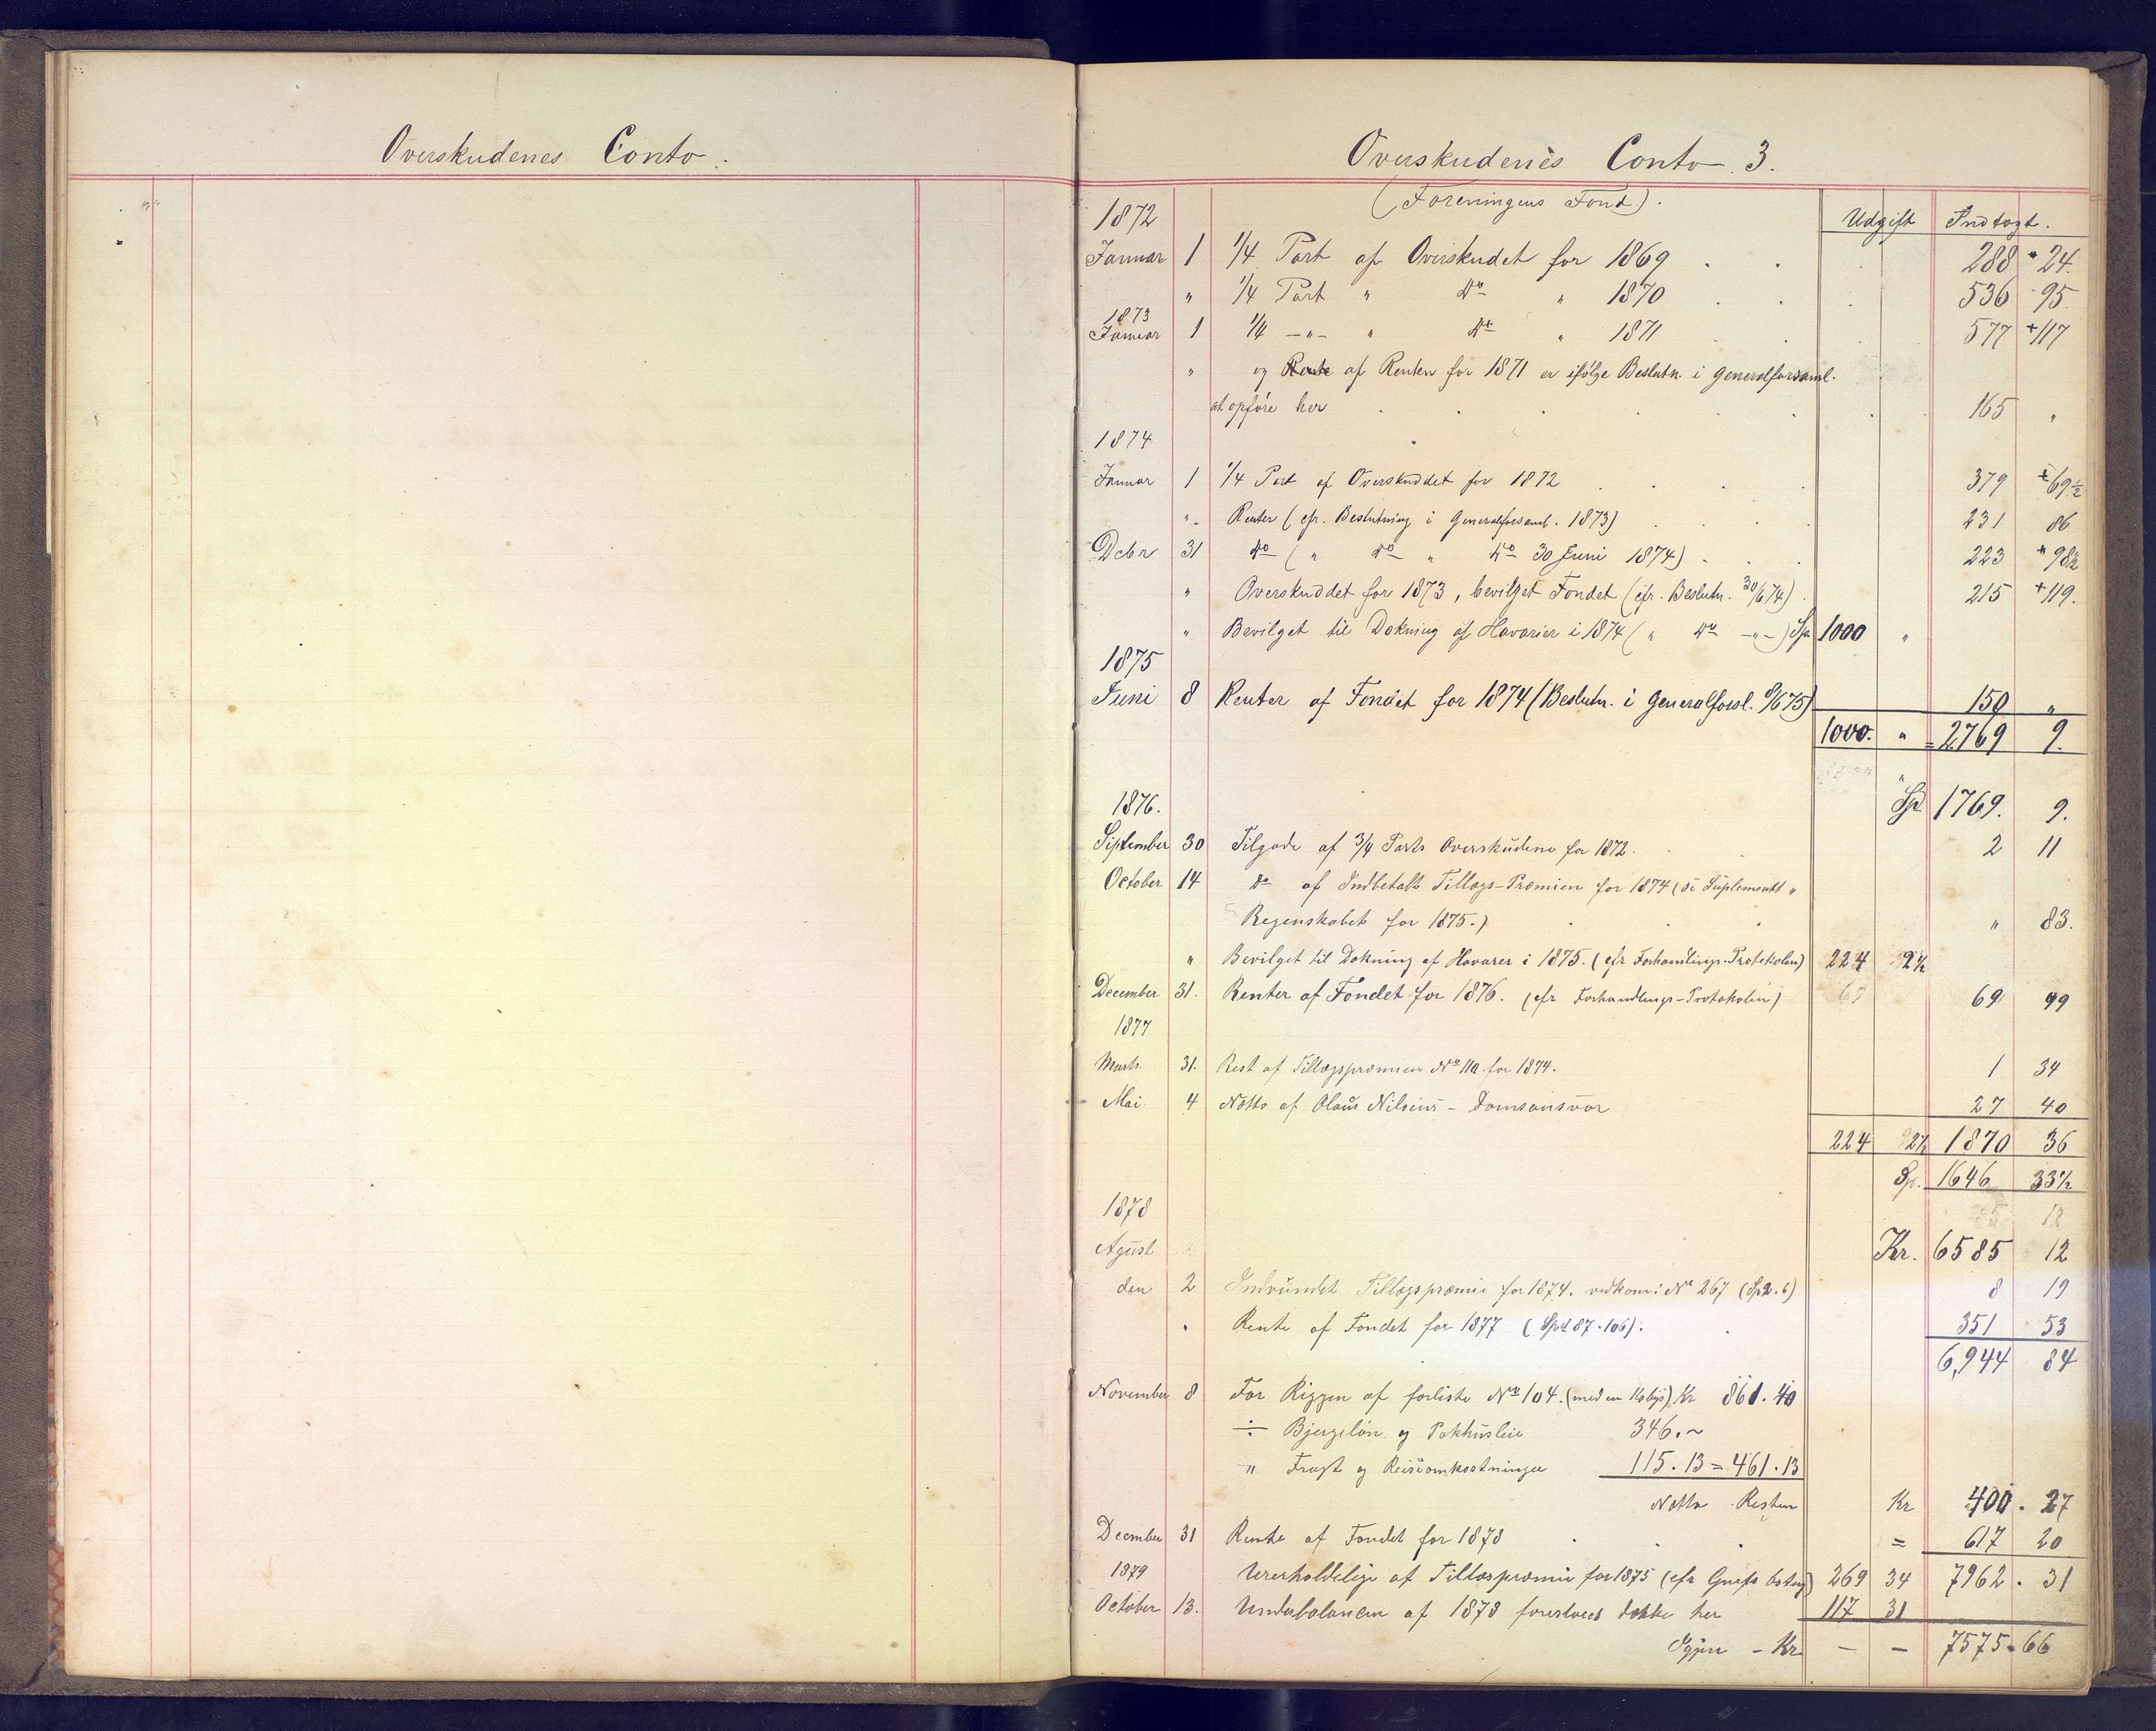 Overskudenes Conto.
Overskudenes Conto 3.
(Foreningens Fond).
1872 Udgift Indtægt.
Januar 1 1/4 Part af Overskudet for 1869 288 24.
" 1/4 Part " Do " 1870 536 95.
1873
Januar 1 1/4 -"- " Do " 1871 577 117
" og af Renten for 1871 er ifølge Beslutn. i Generalforsaml.
at opføre her 165 "
1874
Januar 1 1/4 Part af Overskuddet for 1872 379 69½
" Renter (cfr. Beslutning i Generalforsaml. 1873) 231 86
Decbr 31 Do ( " Do " Do 30 Juni 1874) 223 98½
" Overskuddet for 1873, bevilget Fondet (cfr. Beslutn. 30/6 74) 215 119.
" Bevilget til Dækning af Havarier i 1874 ( " Do -"-) Sp 1000 "
1875
Juni 8 Renter af Fondet for 1874 (Beslutn. i Generalforsl. 8/6 75) 150 "
1000. " 2769 9.
1876. Spd 1769. 9.
September 30 Tilgode af 3/4 Parts Overskudene for 1872. 2 11
October 14 Do af Indbetalt Tillægs-Præmien for 1874 (se Suplements "
Regenskabet for 1875.) " 83.
" Bevilget til Dækning af Havarer i 1875. (cfr Forhandlings-Protokolen) 224 2½
December 31. Renter af Fondet for 1876. (cfr Forhandlings-Protokolen) 69 99
1877
Marts 31. Rest af Tillægspræmien No 110 for 1874. 1 34
Mai 4 Netto af Olaus Nilsens - Domsansvar 27 40
224 2½ 1870 36
Sp. 1646 33½
1878
Agust Kr. 6585 12
den 2 Indvundet Tillægspræmie for 1874. vedkom: No 267 (Sp 2.6) 8 19
" Rente af Fondet for 1877 (Spd 87.106). 351 53
6,944 84
November 8 For Riggen af forliste No 104. (med en Kabys) Kr 861.40
÷ Bjergeløn og Pakhusleie 346.~
" Fragt og Reiseomkostninger 115.13 = 461.13
Netto Resten Kr 400. 27
December 31 Rente af Fondet for 1878 = 617 20
1879 Uerholdelige af Tillæspræmie for 1875 (cfr 269 34 7962. 31
October 13. Underbalancen af 1878 dække her 117 31
Igjen - Kr — — 7575.66